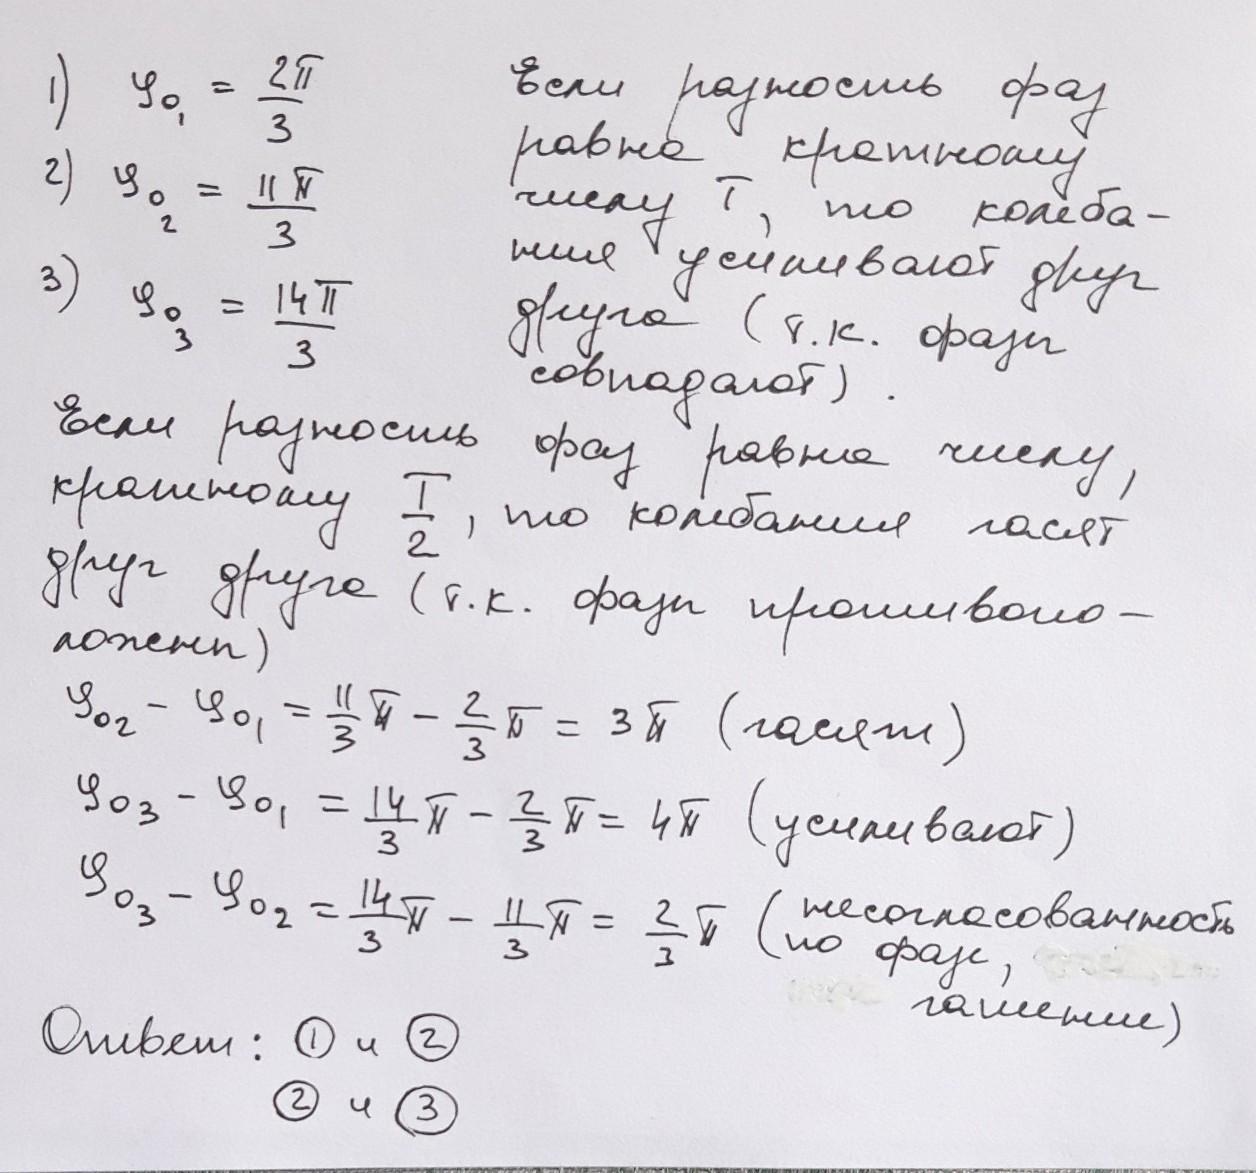 1) φ₀₁ = 2π/3
2) φ₀₂ = 11π/3
3) φ₀₃ = 14π/3
Если разность фаз
равна кратному
числу T, то колеба-
ния усиливают друг
друга (т.к. фазы
совпадают).
Если разность фаз равна числу,
кратному T/2, то колебания гасят
друг друга (т.к. фазы противопо-
ложны)
φ₀₂ - φ₀₁ = 11/3 π - 2/3 π = 3π (гасят)
φ₀₃ - φ₀₁ = 14/3 π - 2/3 π = 4π (усиливают)
φ₀₃ - φ₀₂ = 14/3 π - 11/3 π = 2/3 π (несогласованность
по фазе,
гашение)
Ответ: ① и ②
② и ③